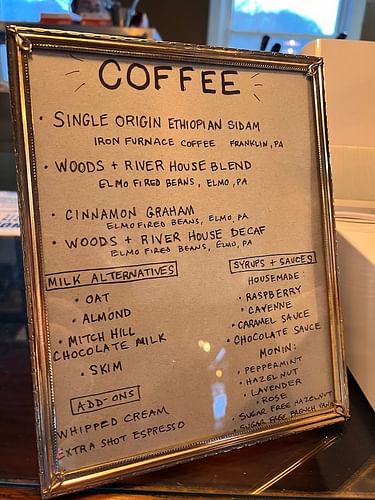 COFFEE
• SINGLE ORIGIN ETHIOPIAN SIDAM
IRON FURNACE COFFEE FRANKLIN, PA
• WOODS + RIVER HOUSE BLEND
ELMO FIRED BEANS, ELMO, PA
• CINNAMON GRAHAM
ELMO FIRED BEANS, ELMO, PA
• WOODS + RIVER HOUSE DECAF
ELMO FIRED BEANS, ELMO, PA
MILK ALTERNATIVES
• OAT
• ALMOND
• MITCH HILL
CHOCOLATE MILK
• SKIM
ADD-ONS
WHIPPED CREAM
EXTRA SHOT ESPRESSO
SYRUPS + SAUCES
HOUSEMADE:
• RASPBERRY
• CAYENNE
• CARAMEL SAUCE
• CHOCOLATE SAUCE
MONIN:
• PEPPERMINT
• HAZELNUT
• LAVENDER
• ROSE
• SUGAR FREE HAZELNUT
• SUGAR FREE FRENCH VANILLA